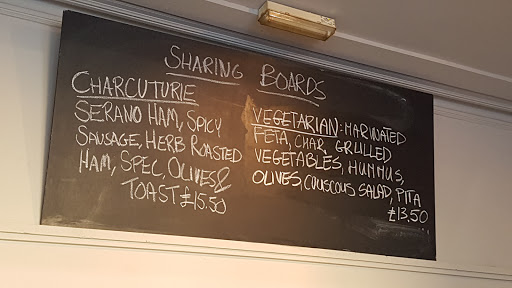 SHARING BOARDS
CHARCUTURIE
SERANO HAM, SPICY
SAUSAGE, HERB ROASTED
HAM, SPEC, OLIVES &
TOAST £15.50
VEGETARIAN: MARINATED
FETA, CHAR GRILLED
VEGETABLES, HUMMUS,
OLIVES, COUSCOUS SALAD, PITA
£13.50